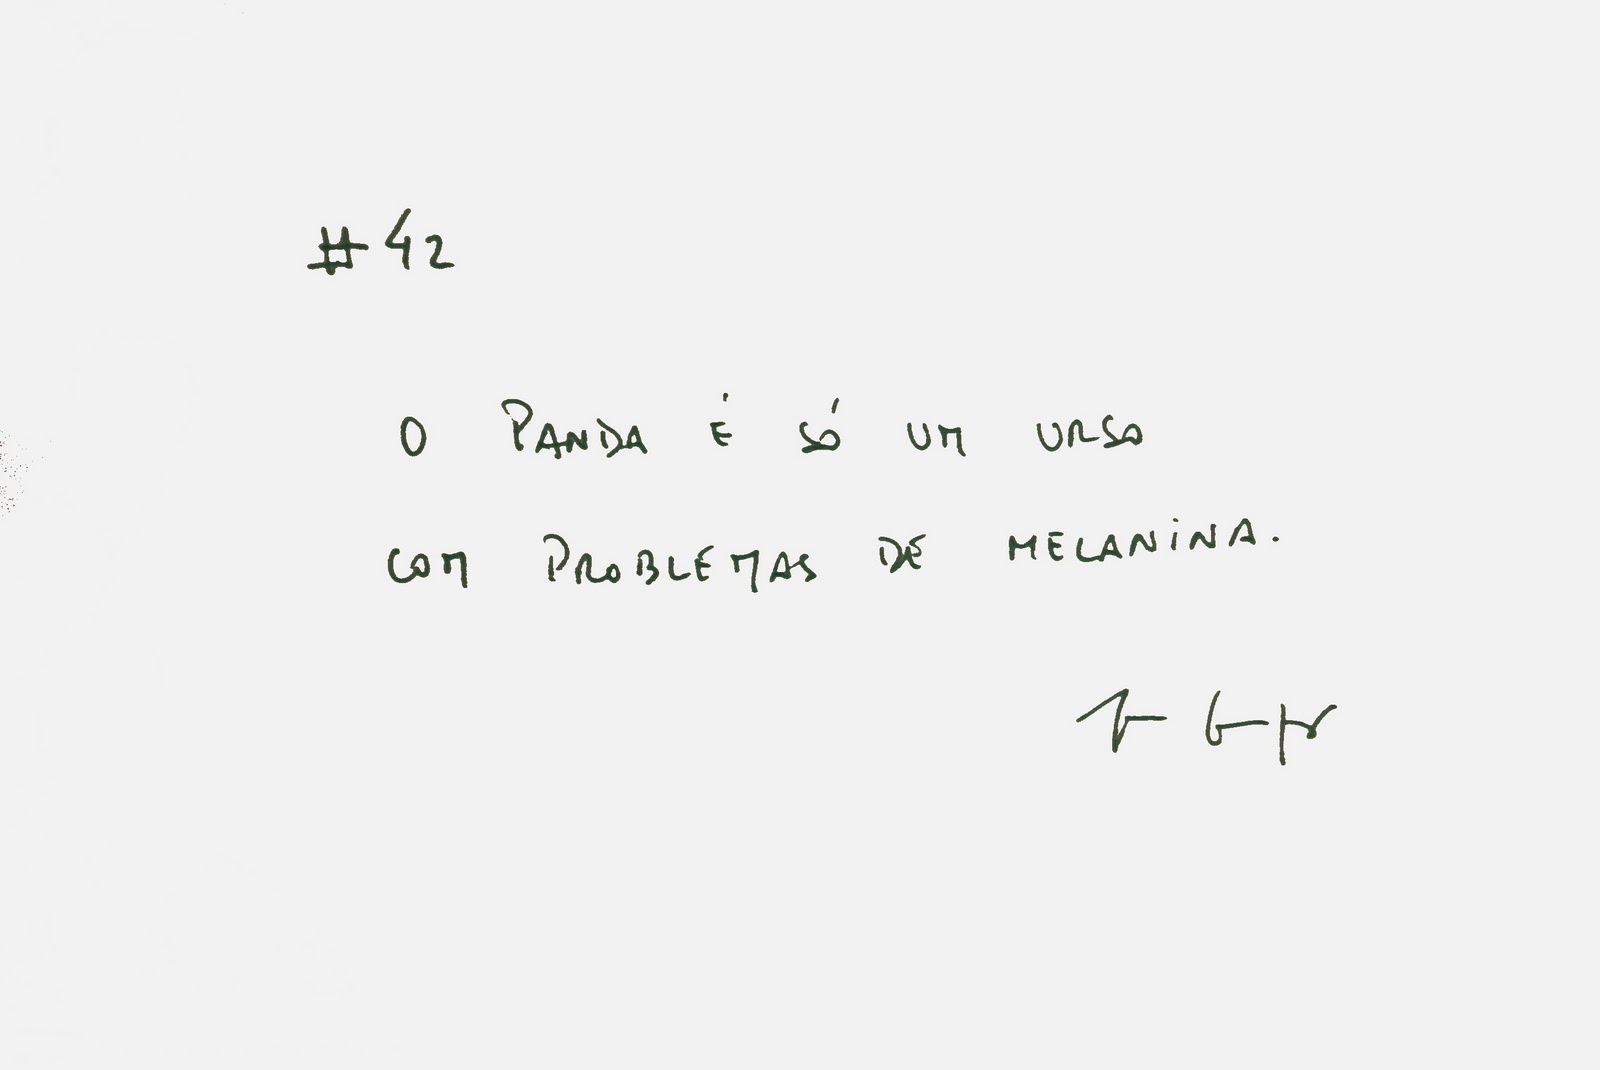 #42
O PANDA É SÓ UM URSO
COM PROBLEMAS DE MELANINA.